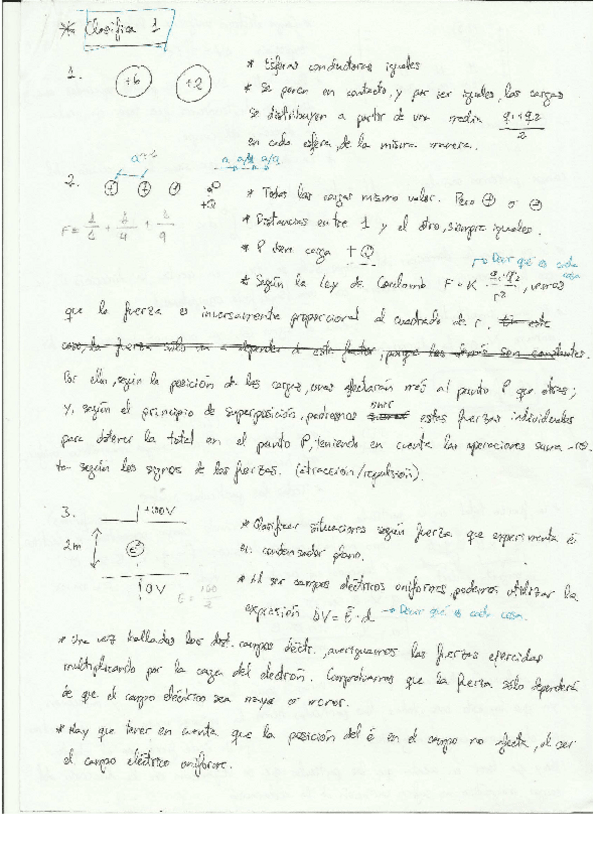 * Clasifica 1
1.
+6
+2
* Esferas conductoras iguales
* Se ponen en contacto, y por ser iguales, las cargas
se distribuyen a partir de una media q₁+q₂/2
en cada esfera, de la misma manera.
2.
+ + - +Q
F = 1/1 + 1/4 + 1/9
* Todas las cargas mismo valor. Pero + o -
* Distancias entre 1 y el otro, siempre iguales.
* P tiene carga +Q
→ Decir qué es cada cosa
* Según la Ley de Coulomb F = K q₁·q₂/r², vemos
que la fuerza es inversamente proporcional al cuadrado de r. En este
caso, la fuerza sólo va a depender de este factor, porque las demás son constantes.
Por ello, según la posición de las cargas, unas afectarán más al punto P que otras;
y, según el principio de superposición, podremos sumar estas fuerzas individuales
para obtener la total en el punto P, teniendo en cuenta las operaciones suma-res-
ta según los signos de las fuerzas. (atracción/repulsión).
3.
+100V
2m
e⁻
0V
E = 100/2
* Clasificar situaciones según fuerza que experimenta e⁻
en condensador plano.
* Al ser campos eléctricos uniformes, podemos utilizar la
expresión ΔV = E·d → Decir qué es cada cosa.
* Una vez hallados los dist. campos eléctr., averiguamos las fuerzas ejercidas
multiplicando por la carga del electrón. Comprobamos que la fuerza sólo dependerá
de que el campo eléctrico sea mayor o menor.
* Hay que tener en cuenta que la posición del e⁻ en el campo no afecta, al ser
el campo eléctrico uniforme.